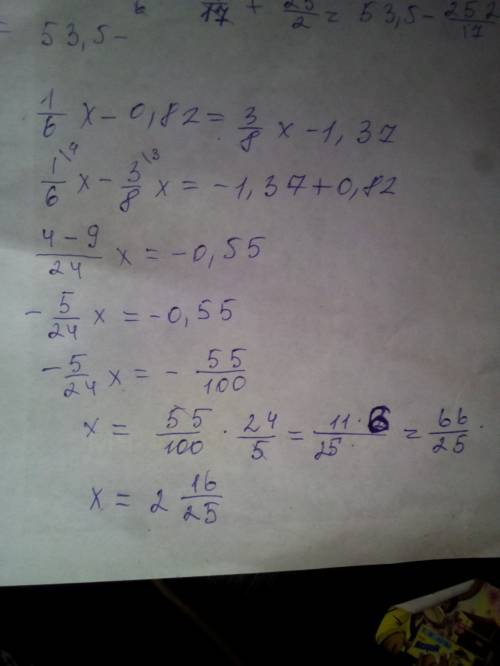 = 53,5 - 6/17 + 25/2 = 53,5 - 252/17
1/6 x - 0,82 = 3/8 x - 1,37
1\4/6 x - 3\3/8 x = -1,37 + 0,82
4-9/24 x = -0,55
-5/24 x = -0,55
-5/24 x = -55/100
x = 55/100 · 24/5 = 11·6/25· = 66/25
x = 2 16/25